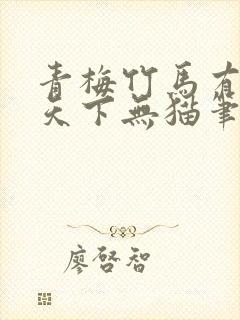 青梅竹馬有
天下無貓筆
廖啓智